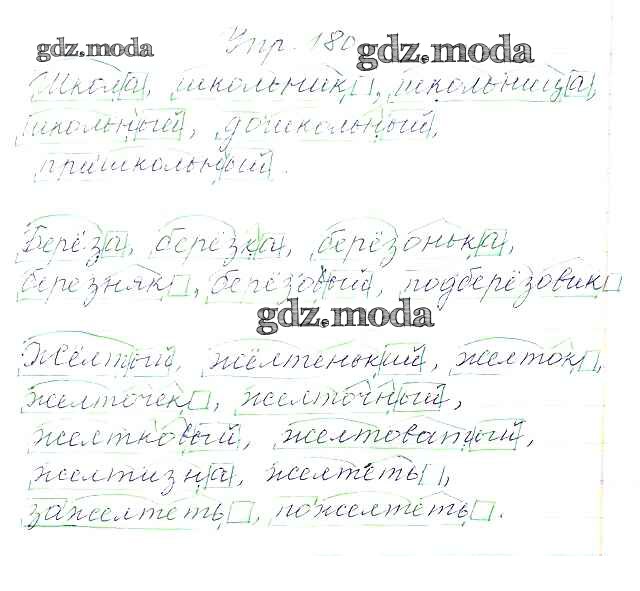 gdz.moda Упр. 180 gdz.moda
Школа, школьник, школьница,
школьный, дошкольный,
пришкольный.
Берёза, берёзка, берёзонька,
березняк, берёзовый, подберёзовик
gdz.moda
Жёлтый, жёлтенький, желток,
желточек, желточный,
желтковый, желтоватый,
желтизна, желтеть,
зажелтеть, пожелтеть.